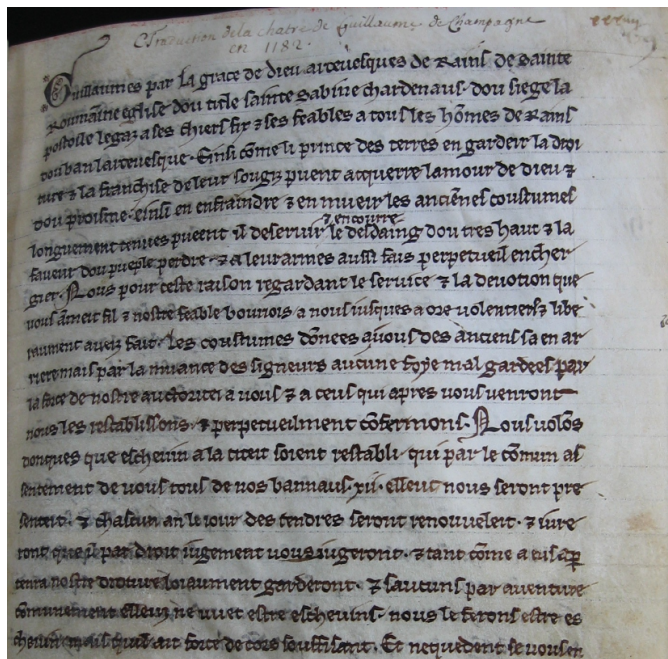 Traduction de la chatre de Guillaume de Champagne
en 1182.
Guillaumes par la grace de dieu arcevesques de Rains de Sainte
Roumainne eglise dou title sainte Sabine chardenaus. dou siege la
postole legaz a ses chiers fix ⁊ ses feables a tous les hõmes de Rains
dou ban larcevesque. Einsi cõme li prince des terres en gardeir la droi
ture ⁊ la franchise de leur sougiz puent acquerre lamour de dieu ⁊
dou proisme. einsi en enfraindre ⁊ en mueir les anciẽnes coustumes
⁊ encourre
longuement tenues pueent il deservir le desdaing dou tres haut ⁊ la
faveur dou pueple perdre. ⁊ a leur armes aussi fais perpetueil encher
gier. Nous pour ceste raison regardant le service ⁊ la devotion que
vous ameit fil ⁊ nostre feable bourjois a nous jusques a ore volentiers ⁊ libe
raument aveiz fait. les coustumes dõnees a vous des anciens sa en ar
riere mais par la muance des signeurs aucune foye mal gardees par
la force de nostre auctoritei a vous ⁊ a ceus qui apres vous venront
nous les restablissons. ⁊ perpetueilment cõfermons. Nous volõs
donques que eschevin a la citeit soient restabli. qui par le cõmun as
sentement de vous tous de nos bannaus. xii. esleut nous seront pre
senteit. ⁊ chascun an le jour des cendres seront renouveleit. ⁊ jure
ront que il par droit jugement vous jugeront. ⁊ tant cõme a eus aper
tenra nostre droiture loiaument garderont. ⁊ saucuns par aventure
cõmunement esleuz ne vuet estre eschevins. nous le ferons estre es
chevin mais quil ait force de cors souffisant. Et nequedent se vous en